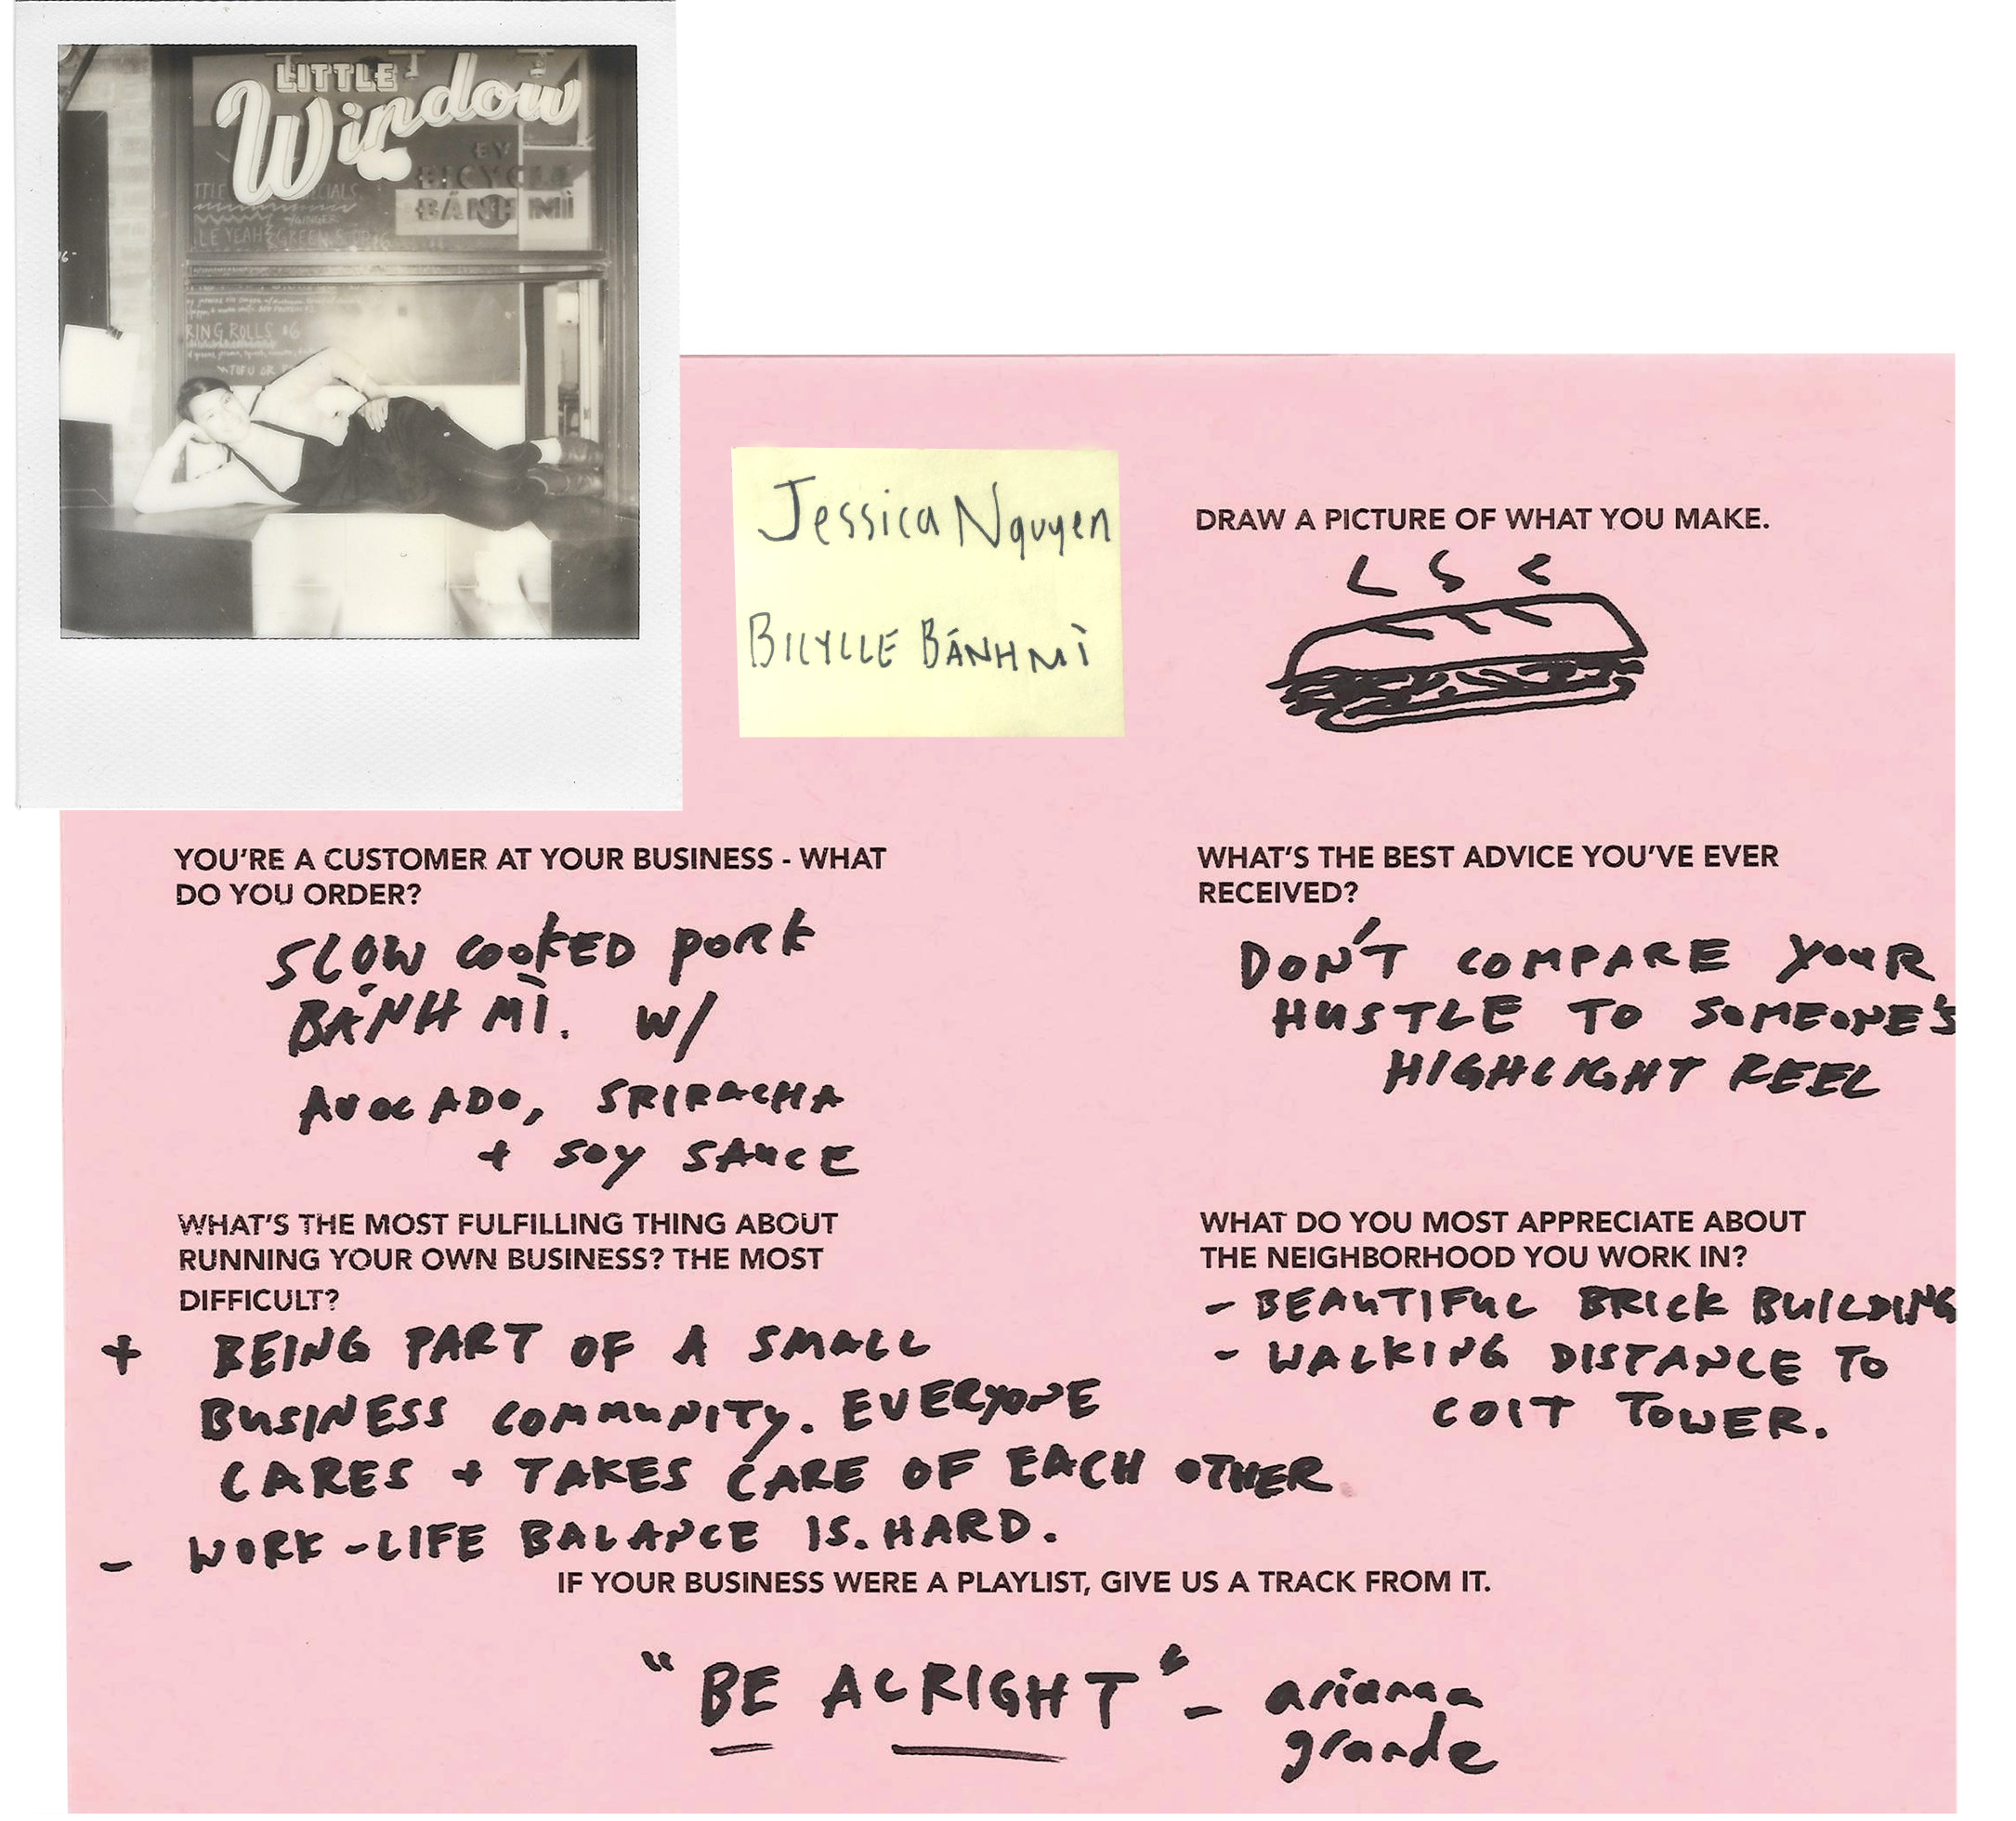 LITTLE
Window
BY
BICYCLE
BÁNH MÌ
SPECIALS
GINGER
LE YEAH
GREEN
6-
RING ROLLS $6
TOFU OR
Jessica Nguyen
BICYCLE BÁNH MÌ
DRAW A PICTURE OF WHAT YOU MAKE.
YOU'RE A CUSTOMER AT YOUR BUSINESS - WHAT
DO YOU ORDER?
SLOW COOKED PORK
BÁNH MÌ. W/
AVOCADO, SRIRACHA
+ SOY SAUCE
WHAT'S THE BEST ADVICE YOU'VE EVER
RECEIVED?
DON'T COMPARE YOUR
HUSTLE TO SOMEONE'S
HIGHLIGHT REEL
WHAT'S THE MOST FULFILLING THING ABOUT
RUNNING YOUR OWN BUSINESS? THE MOST
DIFFICULT?
+ BEING PART OF A SMALL
BUSINESS COMMUNITY. EVERYONE
CARES + TAKES CARE OF EACH OTHER
- WORK-LIFE BALANCE IS. HARD.
WHAT DO YOU MOST APPRECIATE ABOUT
THE NEIGHBORHOOD YOU WORK IN?
- BEAUTIFUL BRICK BUILDING
- WALKING DISTANCE TO
COIT TOWER.
IF YOUR BUSINESS WERE A PLAYLIST, GIVE US A TRACK FROM IT.
"BE ALRIGHT" - arianna
grande